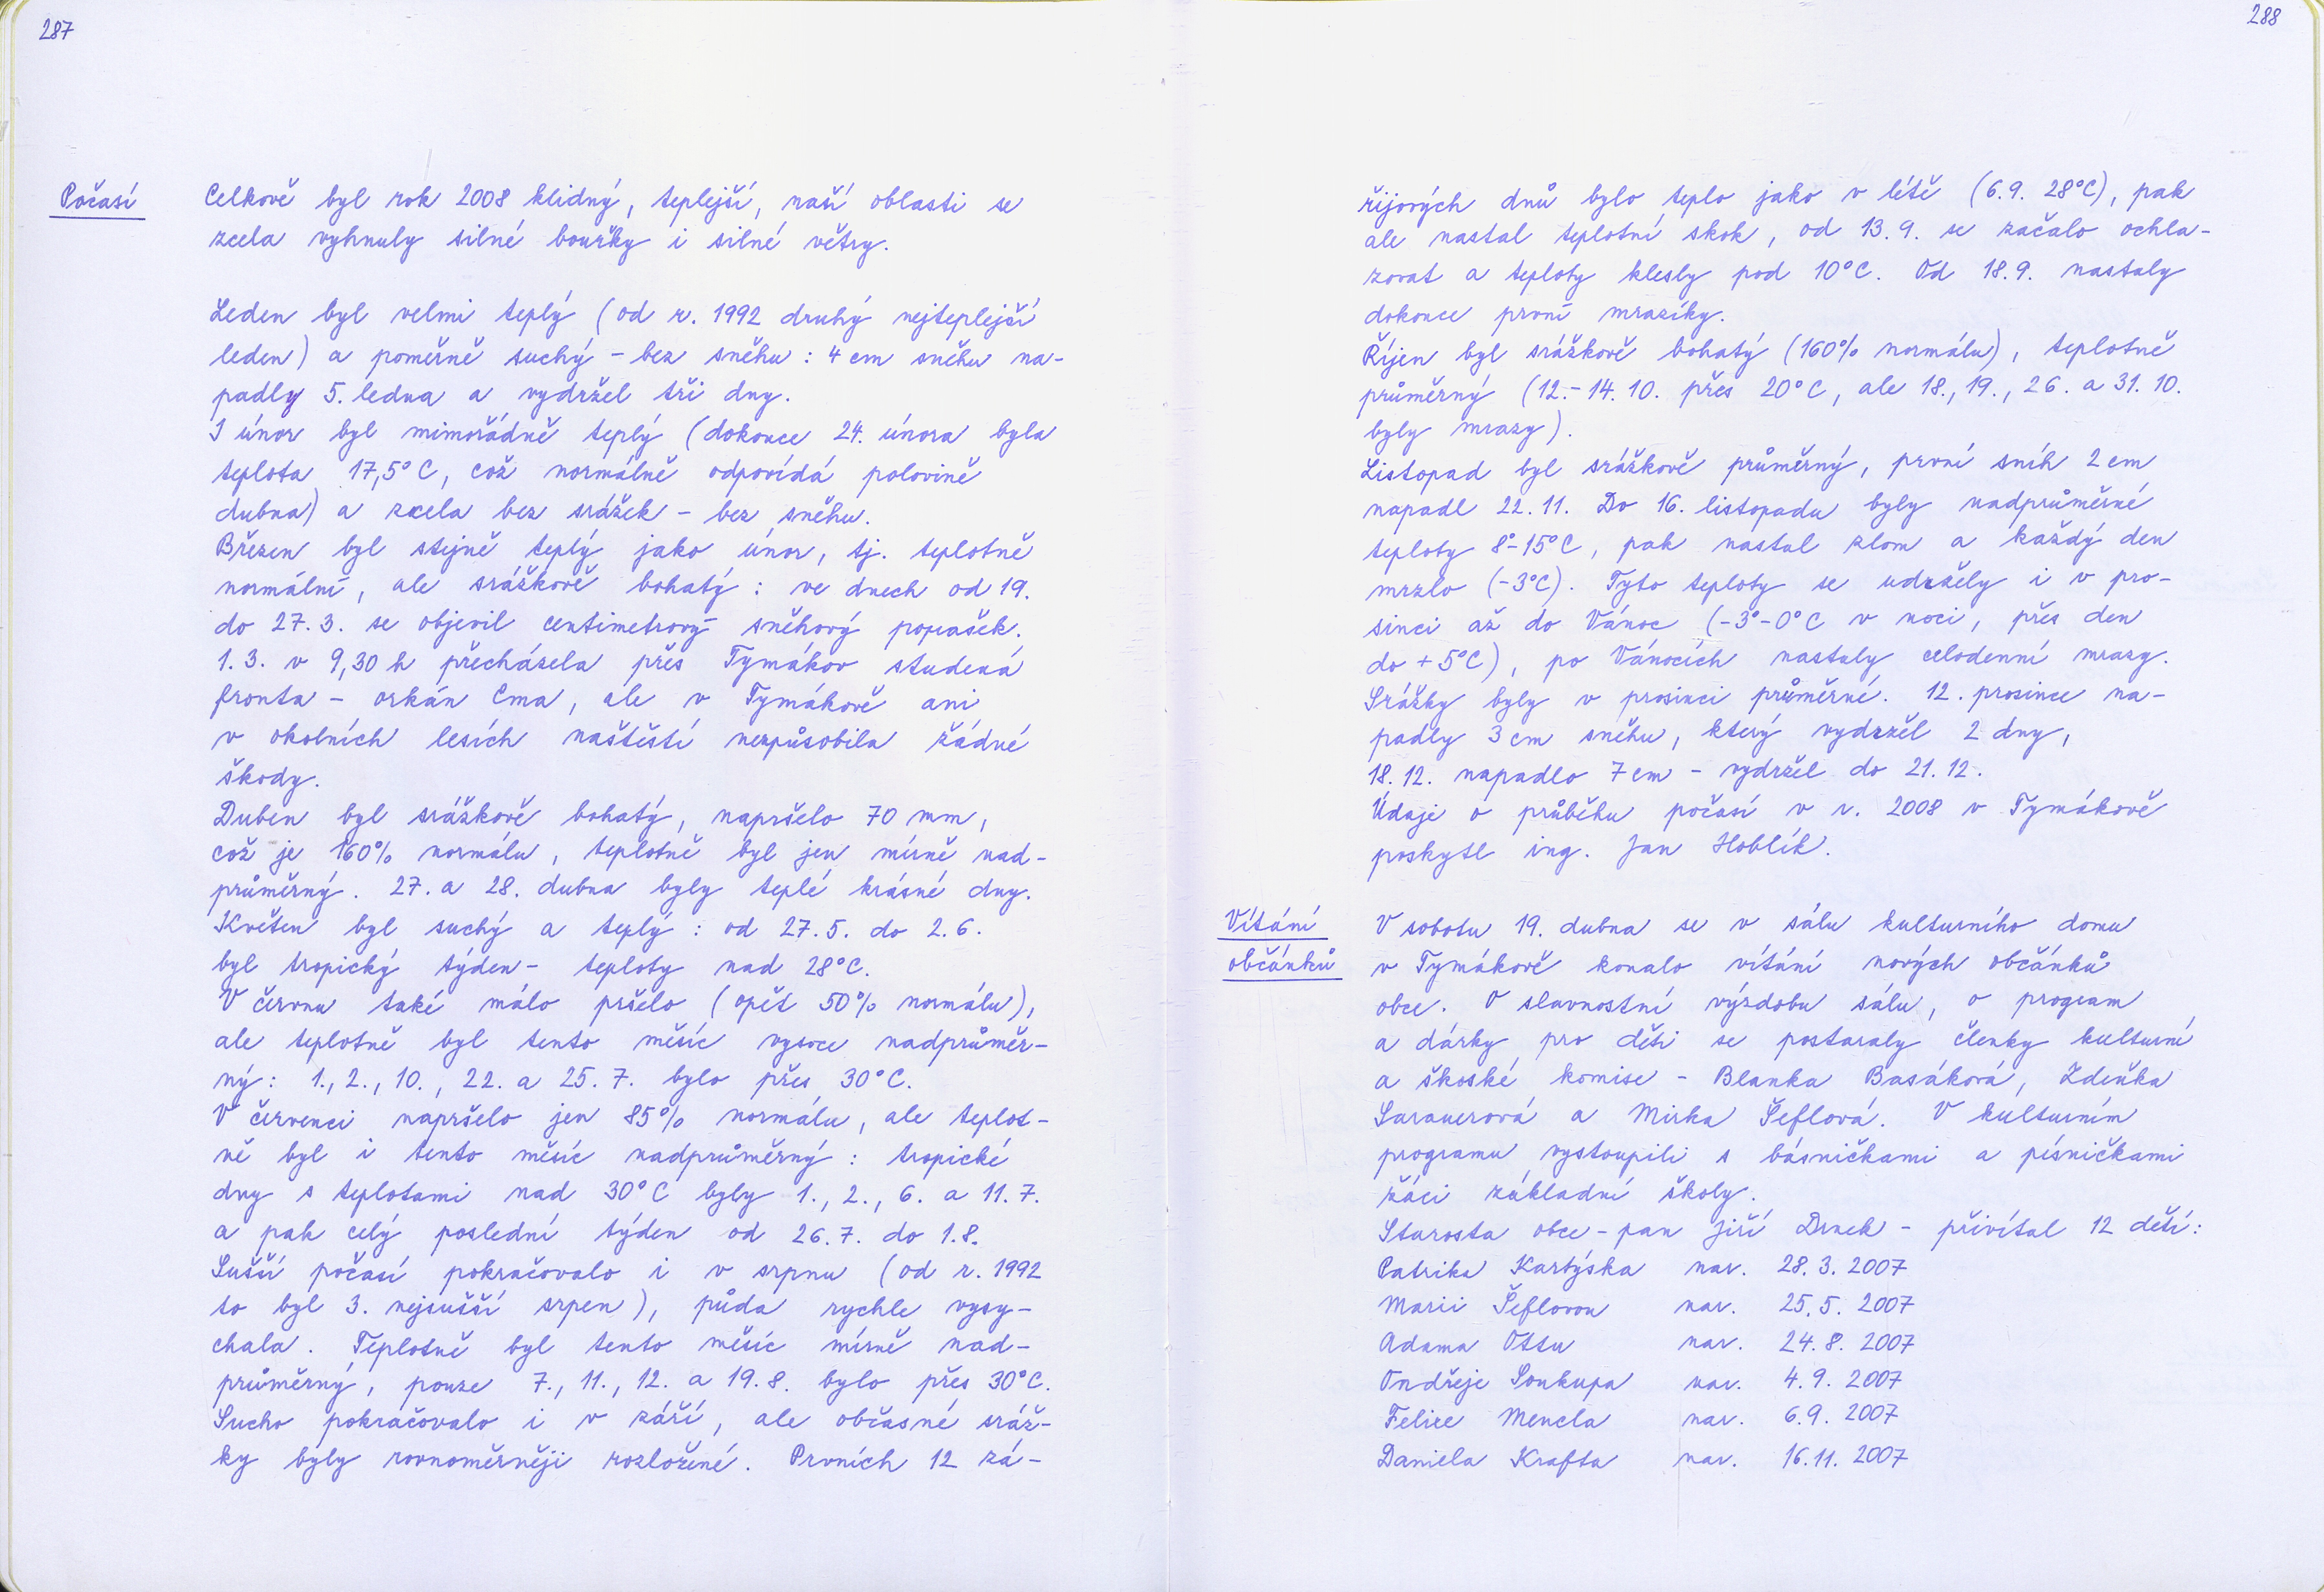 287
Počasí
Celkově byl rok 2008 klidný, teplejší, naší oblasti se
zcela vyhnuly silné bouřky i silné větry.
Leden byl velmi teplý (od r. 1992 druhý nejteplejší
leden) a poměrně suchý – bez sněhu : 4 cm sněhu na-
padly 5. ledna a vydržel tři dny.
I únor byl mimořádně teplý (dokonce 24. února byla
teplota 17,5°C, což normálně odpovídá polovině
dubna) a zcela bez srážek – bez sněhu.
Březen byl stejně teplý jako únor, tj. teplotně
normální, ale srážkově bohatý : ve dnech od 19.
do 27. 3. se objevil centimetrový sněhový poprašek.
1. 3. v 9,30 h přecházela přes Tymákov studená
fronta – orkán Ema, ale v Tymákově ani
v okolních lesích naštěstí nezpůsobila žádné
škody.
Duben byl srážkově bohatý, napršelo 70 mm,
což je 160% normálu, teplotně byl jen mírně nad-
průměrný. 27. a 28. dubna byly teplé krásné dny.
Květen byl suchý a teplý : od 27. 5. do 2. 6.
byl tropický týden – teploty nad 28°C.
V červnu také málo pršelo (opět 50% normálu),
ale teplotně byl tento měsíc vysoce nadprůměr-
ný : 1., 2., 10., 22. a 25. 7. bylo přes 30°C.
V červenci napršelo jen 85% normálu, ale teplot-
ně byl i tento měsíc nadprůměrný : tropické
dny s teplotami nad 30°C byly 1., 2., 6. a 11. 7.
a pak celý poslední týden od 26. 7. do 1. 8.
Sušší počasí pokračovalo i v srpnu (od r. 1992
to byl 3. nejsušší srpen), půda rychle vysy-
chala. Teplotně byl tento měsíc mírně nad-
průměrný, pouze 7., 11., 12. a 19. 8. bylo přes 30°C.
Sucho pokračovalo i v září, ale občasné sráž-
ky byly rovnoměrněji rozložené. Prvních 12 zá-
288
řijových dnů bylo teplo jako v létě (6. 9. 28°C), pak
ale nastal teplotní skok, od 13. 9. se začalo ochla-
zovat a teploty klesly pod 10°C. Od 18. 9. nastaly
dokonce první mrazíky.
Říjen byl srážkově bohatý (160% normálu), teplotně
průměrný (12. – 14. 10. přes 20°C, ale 18., 19., 26. a 31. 10.
byly mrazy).
Listopad byl srážkově průměrný, první sníh 2 cm
napadl 22. 11. Do 16. listopadu byly nadprůměrné
teploty 8°–15°C, pak nastal zlom a každý den
mrzlo (–3°C). Tyto teploty se udržely i v pro-
sinci až do Vánoc (–3°–0°C v noci, přes den
do +5°C), po Vánocích nastaly celodenní mrazy.
Srážky byly v prosinci průměrné. 12. prosince na-
padly 3 cm sněhu, který vydržel 2 dny,
18. 12. napadlo 7 cm – vydržel do 21. 12.
Údaje o průběhu počasí v r. 2008 v Tymákově
poskytl ing. Jan Hoblík.
Vítání
občánků
V sobotu 19. dubna se v sálu kulturního domu
v Tymákově konalo vítání nových občánků
obce. O slavnostní výzdobu sálu, o program
a dárky pro děti se postaraly členky kulturní
a škoské komise – Blanka Basáková, Zdeňka
Sarauerová a Mirka Šeflová. V kulturním
programu vystoupili s básničkami a písničkami
žáci základní školy.
Starosta obce – pan Jiří Drnek – přivítal 12 dětí :
Patrika Kartýska nar. 28. 3. 2007
Marii Šeflovou nar. 25. 5. 2007
Adama Ottu nar. 24. 8. 2007
Ondřeje Soukupa nar. 4. 9. 2007
Felixe Mencla nar. 6. 9. 2007
Daniela Krafta nar. 16. 11. 2007